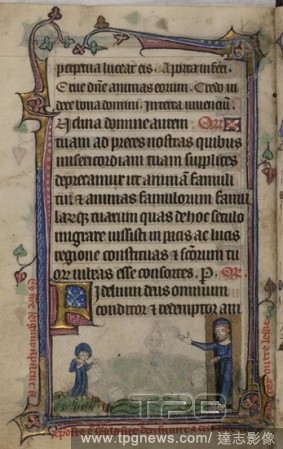 perpetua luceat eis. A porta inferi.
Erue dñe animas eorum. Credo vi
dere bona domini. In terra viuenciū.
Inclina domine aurem
tuam ad preces nostras quibus
misericordiam tuam supplices
deprecamur ut animā famuli
tui et animas famulorum famu
larūq; tuarum quas de hoc seculo
migrare iussisti in pacis ac lucis
regione constituas et scōrum tu
orum iubeas esse consortes. P.
Fidelium deus omnium
conditor et redemptor ani
TPG
www.tpgnews.com/ 達志影像